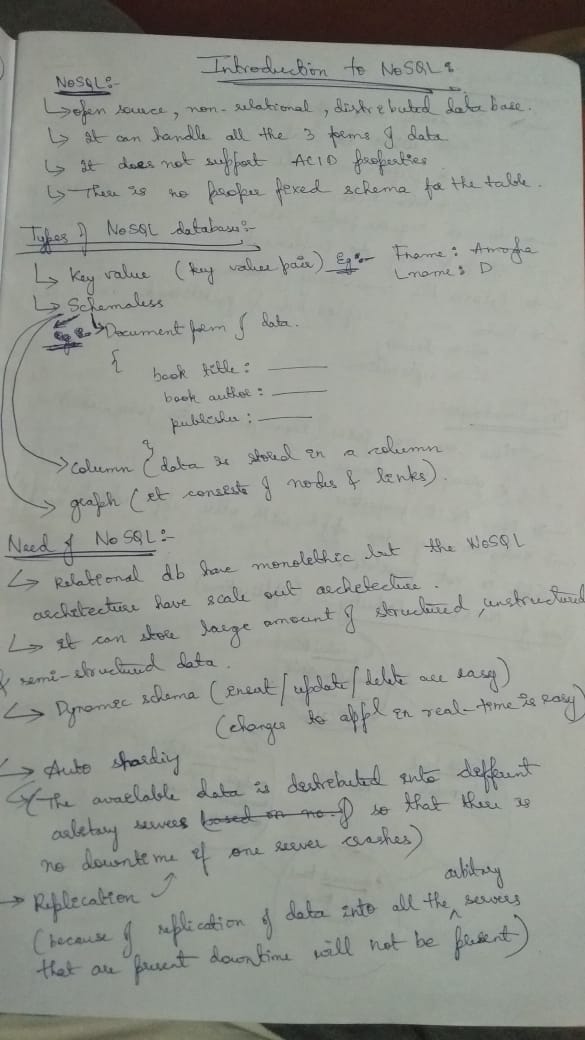 Introduction to NoSQL:
NoSQL:-
↳ open source, non-relational, distributed data base.
↳ It can handle all the 3 forms of data
↳ It does not support ACID properties
↳ There is no proper fixed schema for the table.
Types of NoSQL databases:-
↳ Key value (key value pair) Eg:- Fname: Amogha
Lname: D
↳ Schemaless
↳ Document form of data.
{
book title: ____
book author: ____
publisher: ____
}
→ column (data is stored in a column
→ graph (it consists of nodes & links).
Need of NoSQL:-
↳ Relational db have monolithic but the NoSQL
architecture have scale out architecture.
↳ It can store large amount of structured, unstructured
& semi-structured data.
↳ Dynamic schema (insert/update/delete are easy)
(changes to appl in real-time is easy)
↳ Auto sharding
(The available data is distributed into different
arbitary servers based on no. of so that there is
no downtime if one server crashes)
→ Replication
(because of replication of data into all the arbitrary servers
that are present downtime will not be present)